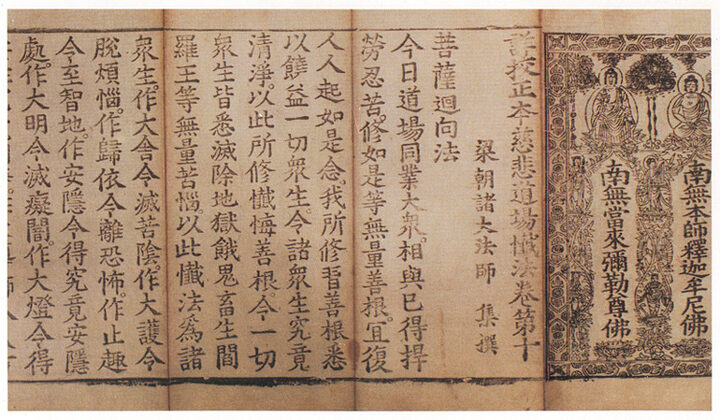 南無本師釋迦牟尼佛
南無當來彌勒尊佛
詳校正本慈悲道場懺法卷第十
梁朝諸大法師 集撰
菩薩迴向法
今日道場同業大衆。相與已得捍
勞忍苦。修如是等無量善根。宜復
人人起如是念。我所修習善根。悉
以饒益一切衆生。令諸衆生究竟
清淨。以此所修懺悔善根。令一切
衆生皆悉滅除地獄餓鬼畜生閻
羅王等無量苦惱。以此懺法爲諸
衆生。作大舍令滅苦陰。作大護令
脫煩惱。作歸依令離恐怖。作止趣
令至智地。作安隱令得究竟安隱
處。作大明令滅癡闇。作大燈令得